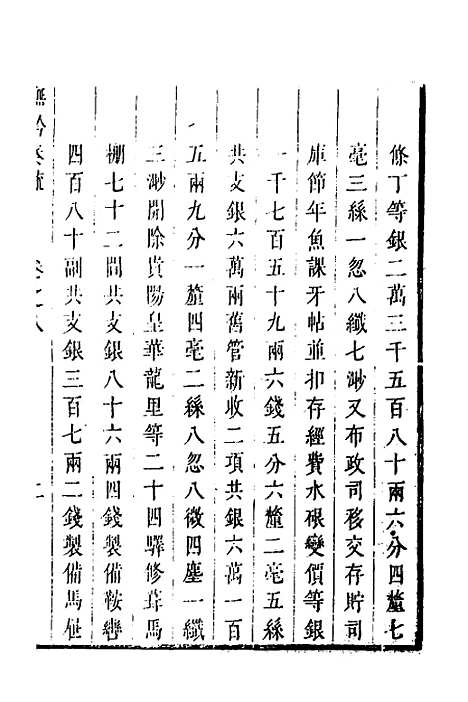 條丁等銀二萬三千五百八十兩六分四釐七
毫三絲一忽八纖七渺又布政司移交存貯司
庫節年魚課牙帖並扣存經費水碾變價等銀
一千七百五十九兩六錢五分六釐二毫五絲
共支銀六萬兩舊管新收二項共銀六萬一百
五兩九分一釐四毫二絲八忽八微四塵一纖
三渺開除貴陽皇華龍里等二十四驛修葺馬
棚七十二間共支銀八十六兩四錢製備鞍轡
四百八十副共支銀三百七兩二錢製備馬世
撫黔奏疏 卷之八